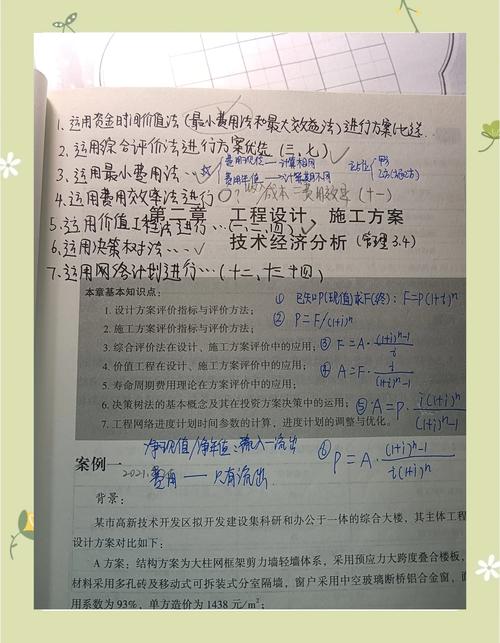 1. 运用资金时间价值法(最小费用法和最大效益法)进行方案比选
2. 运用综合评价法进行方案优选(三、七)✓
3. 运用最小费用法...
费用现值→计算期相同
费用年值→计算期不同
4. 运用费用效率法进行
成本=费用效率(十一)
第二章 工程设计、施工方案
5. 运用价值工程法进行...(一、二、四)✓
技术经济分析(管理3.4)
6. 运用决策树法...✓
7. 运用网络计划进行...(十二、十三、十四)
本章基本知识点:
① 已知P(现值)求F(终): F=P(1+i)^n
1. 设计方案评价指标与评价方法;
② P=F/(1+i)^n
2. 施工方案评价指标与评价方法;
3. 综合评价法在设计、施工方案评价中的应用;
③ F=A·((1+i)^n-1)/i
4. 价值工程在设计、施工方案评价中的应用;
④ A=F·i/((1+i)^n-1)
5. 寿命周期费用理论在方案评价中的应用;
6. 决策树法的基本概念及其在投资方案决策中的运用;
⑤ A=P·i(1+i)^n/((1+i)^n-1)
7. 工程网络进度计划时间参数的计算,进度计划的调整与优化。
净现值/净年值:流入-流出
⑥ P=A·((1+i)^n-1)/(i(1+i)^n)
案例一
2021.
费用——只有流出
背景:
某市高新技术开发区拟开发建设集科研和办公于一体的综合大楼,其主体工程
设计方案对比如下:
A方案:结构方案为大柱网框架剪力墙轻墙体系,采用预应力大跨度叠合楼板,
材料采用多孔砖及移动式可拆装式分室隔墙,窗户采用中空玻璃断桥铝合金窗,
用系数为93%,单方造价为1438元/m²;